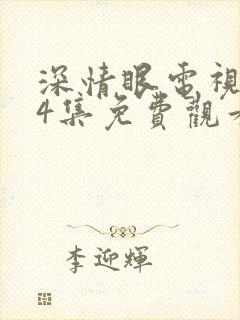 深情眼電視
4集免費觀
李迎輝